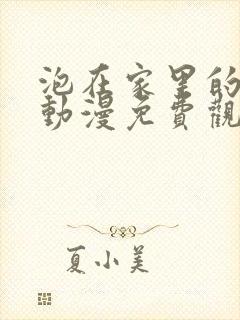 泡在家里的
動漫免費觀
夏小美